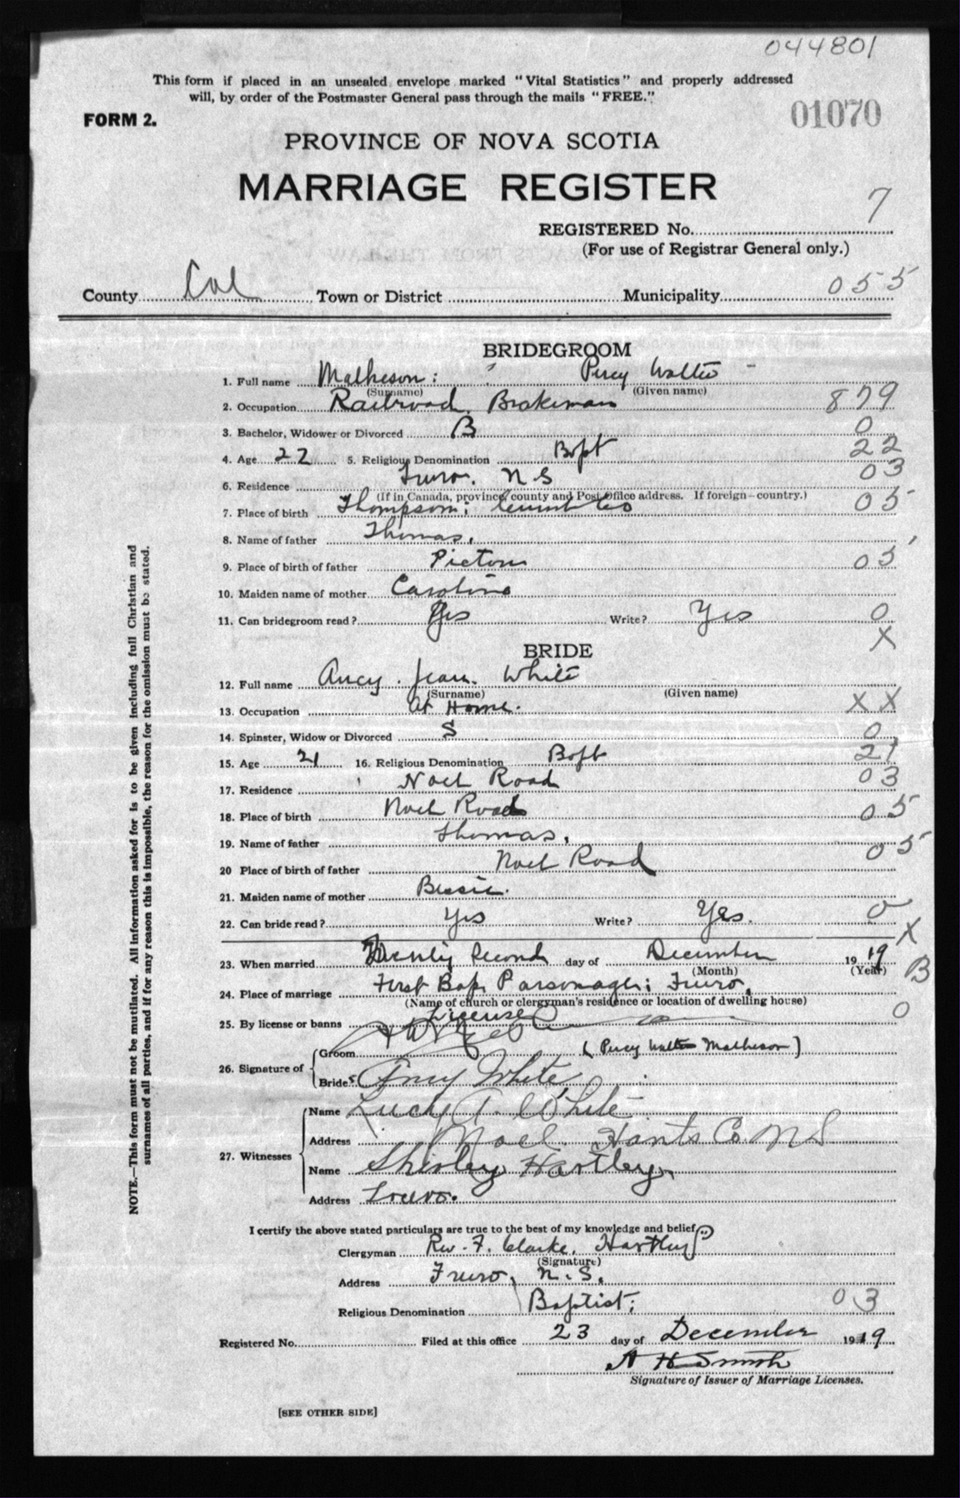 044801
This form if placed in an unsealed envelope marked "Vital Statistics" and properly addressed
will, by order of the Postmaster General pass through the mails "FREE."
FORM 2.
01070
PROVINCE OF NOVA SCOTIA
MARRIAGE REGISTER
7
REGISTERED No.
(For use of Registrar General only.)
County Col Town or District Municipality 055
BRIDEGROOM
1. Full name Matheson: Percy Walter
(Surname) (Given name)
2. Occupation Railroad Brakeman 879
3. Bachelor, Widower or Divorced B 0
4. Age 22 5. Religious Denomination Bapt 22
6. Residence Truro. N S 03
(If in Canada, province, county and Post Office address. If foreign—country.)
7. Place of birth Thompson; 05
8. Name of father Thomas,
9. Place of birth of father Pictou 05
10. Maiden name of mother Caroline
11. Can bridegroom read? Yes Write? Yes 0
X
BRIDE
12. Full name Ancy. Jean. White
(Surname) (Given name)
13. Occupation At Home. X X
14. Spinster, Widow or Divorced S 0
15. Age 21 16. Religious Denomination Bapt 21
17. Residence Noel Road 03
18. Place of birth Noel Road 05
19. Name of father Thomas,
20 Place of birth of father Noel Road 05
21. Maiden name of mother Bessie.
22. Can bride read? Yes Write? Yes. 0
X
23. When married Twenty Second day of December 1919
(Month) (Year) B
24. Place of marriage First Bap. Parsonage; Truro,
(Name of church or clergyman's residence or location of dwelling house)
25. By license or banns License 0
26. Signature of
Groom (Percy Walter Matheson)
Bride Ancy White
27. Witnesses
Name Lucy A. White
Address Noel Hants Co N S
Name Shirley Hartley
Address Truro.
I certify the above stated particulars are true to the best of my knowledge and belief.
Clergyman Rev. F. Clarke, Hartley
(Signature)
Address Truro, N.S.
Religious Denomination Baptist; 03
Registered No. Filed at this office 23 day of December 1919
A H Smith
Signature of Issuer of Marriage Licenses.
[SEE OTHER SIDE]
NOTE.—This form must not be mutilated. All information asked for is to be given including full Christian and
surnames of all parties, and if for any reason this is impossible, the reason for the omission must be stated.